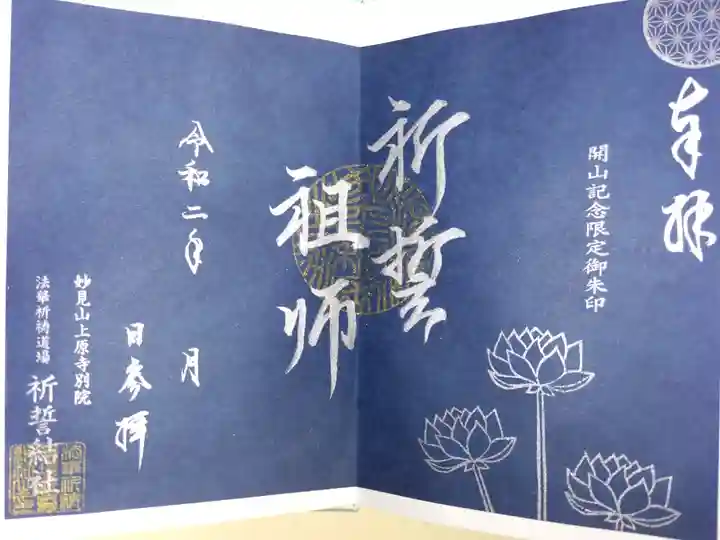 奉拝
開山記念限定御朱印
祈誓
祖师
令和二年
月
日参拝
妙見山上原寺別院
法華祈祷道場
祈誓結社